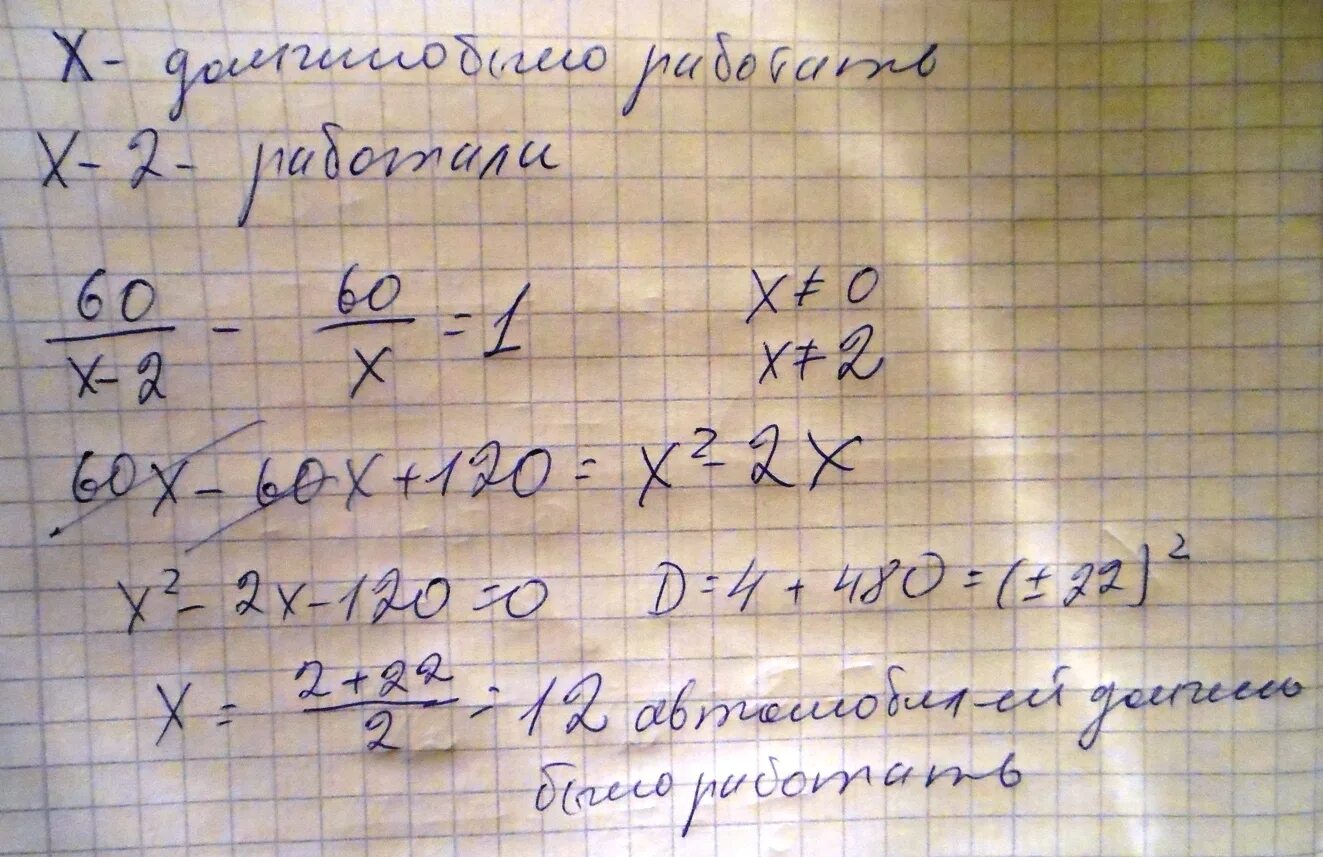 X - должно было работать
X - 2 - работали
60/(x-2) - 60/x = 1
x ≠ 0
x ≠ 2
60x - 60x + 120 = x² - 2x
x² - 2x - 120 = 0 D = 4 + 480 = (± 22)²
x = (2+22)/2 = 12 автомобилей должно
было работать